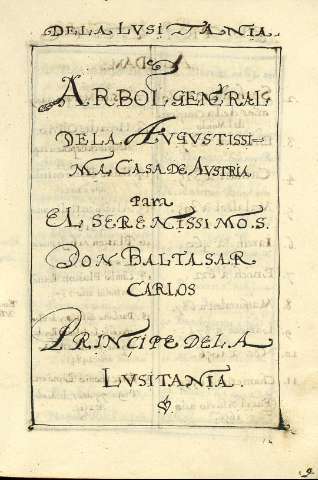 DE LA LVSITANIA
ARBOL GENERAL
DE LA AVGVSTISSI-
MA CASA DE AVSTRIA
Para
EL SERENISSIMO S.
DON BALTASAR
CARLOS
PRINCIPE DE LA
LVSITANIA.